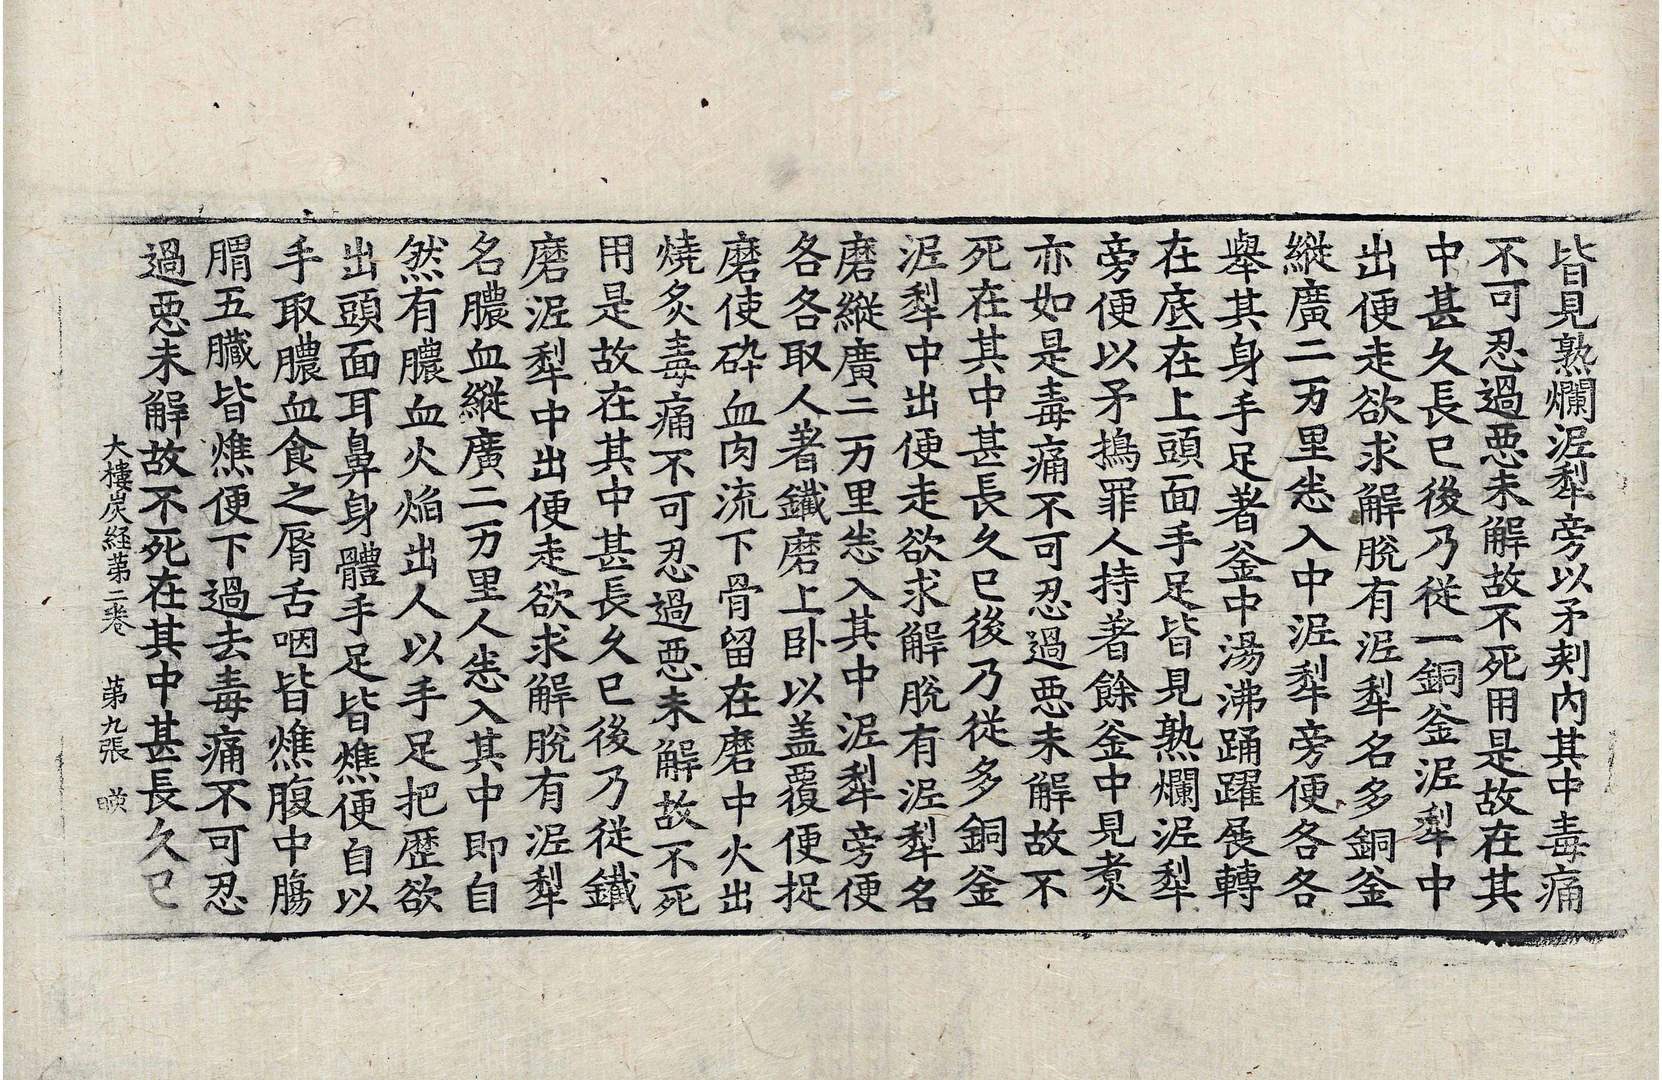 皆見熟爛泥犁旁以矛刾內其中毒痛
不可忍過惡未解故不死用是故在其
中甚久長已後乃従一銅釜泥犁中
出便走欲求解脫有泥犁名多銅釜
縱廣二万里悉入中泥犁旁便各各
舉其身手足著釜中湯沸踊躍展轉
在底在上頭面手足皆見熟爛泥犁
旁便以矛擣罪人持著餘釜中見煑
亦如是毒痛不可忍過惡未解故不
死在其中甚長久已後乃従多銅釜
泥犁中出便走欲求解脫有泥犁名
磨縱廣二万里悉入其中泥犁旁便
各各取人著鐵磨上卧以盖覆便捉
磨使碎血肉流下骨留在磨中火出
燒炙毒痛不可忍過惡未解故不死
用是故在其中甚長久已後乃従鐵
磨泥犁中出便走欲求解脫有泥犁
名膿血縱廣二万里人悉入其中即自
然有膿血火焰出人以手足把歷欲
出頭面耳鼻身體手足皆燋便自以
手取膿血食之脣舌咽皆燋腹中腸
胃五臟皆燋便下過去毒痛不可忍
過惡未解故不死在其中甚長久已
大樓炭経苐二卷 苐九張 暎